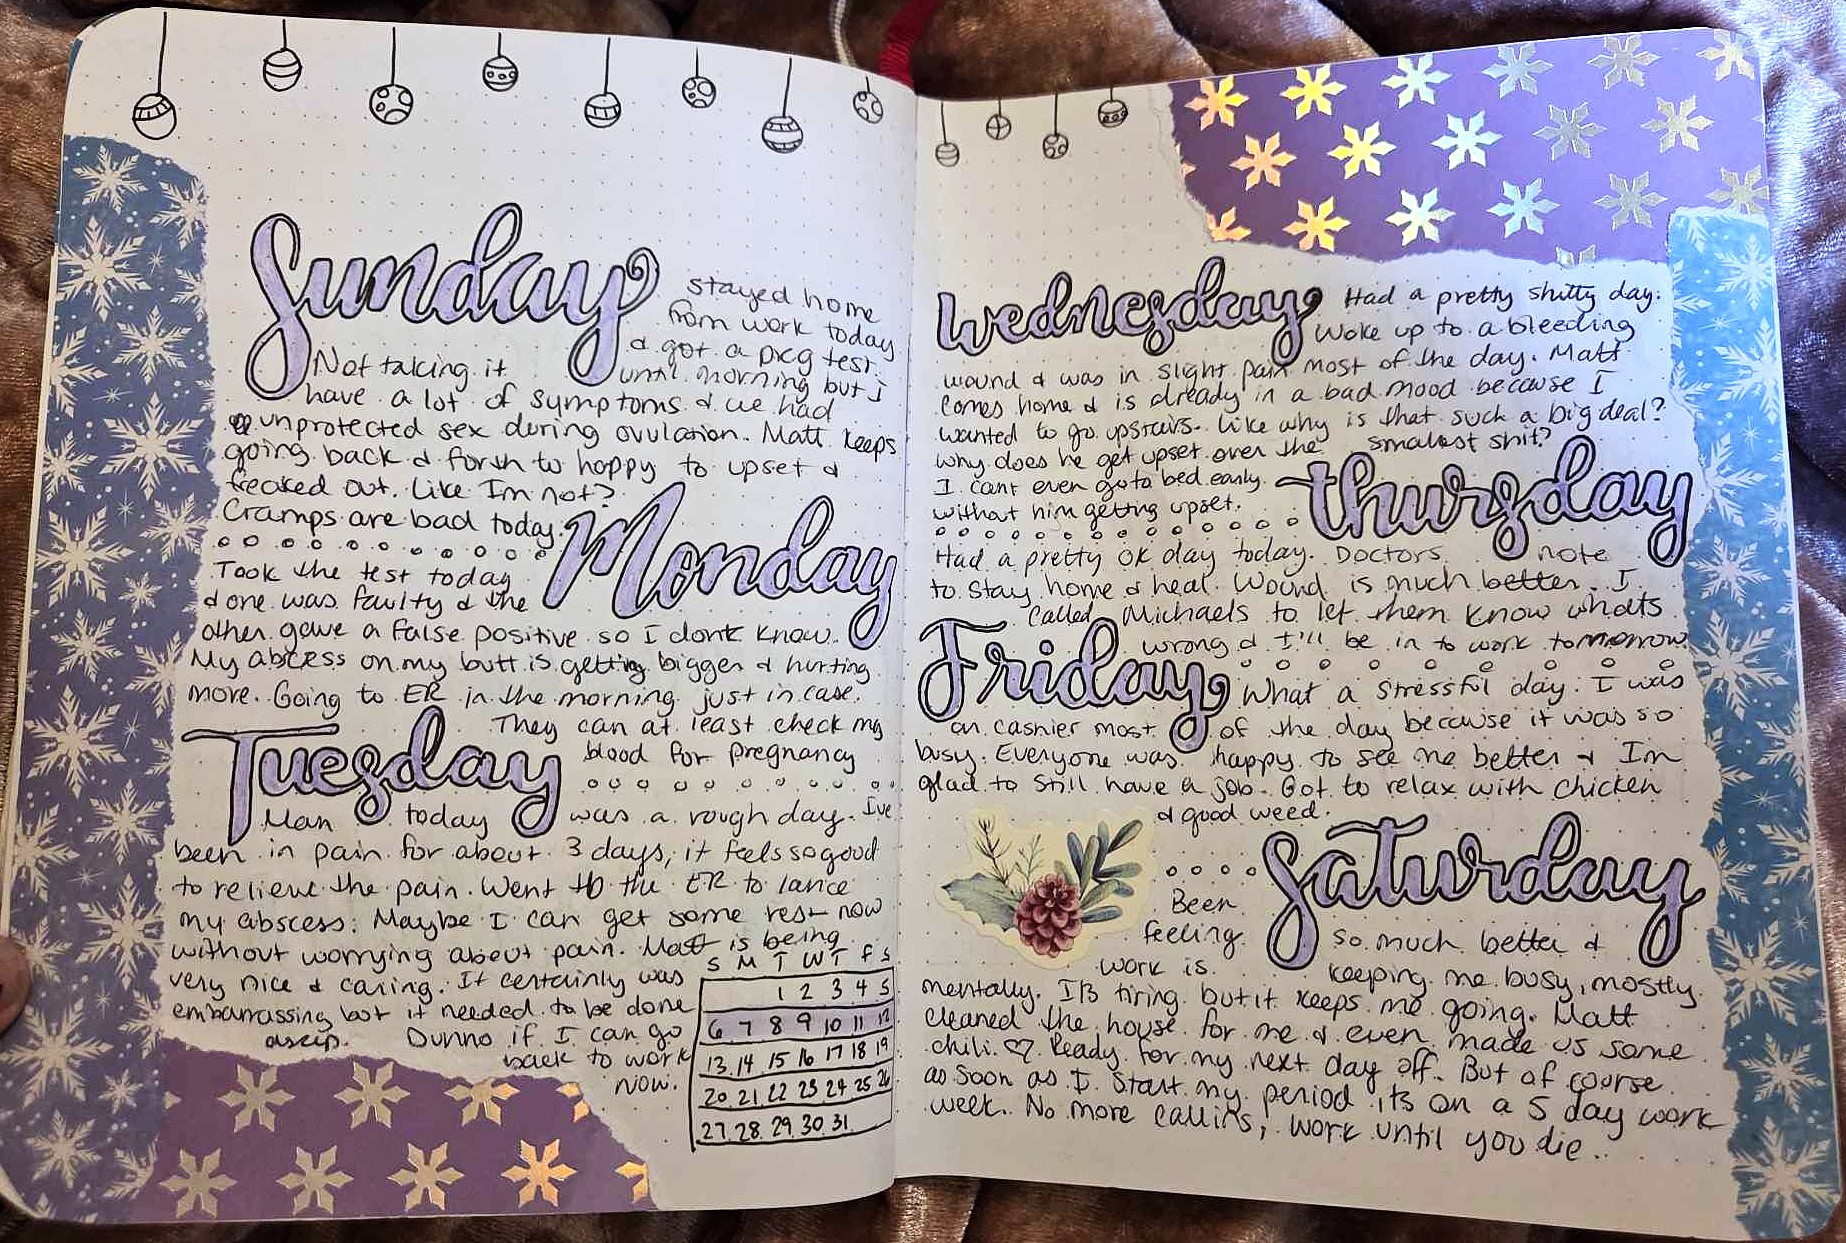 Sunday
stayed home
from work today
& got a preg test.
Not taking it until morning but i
have a lot of symptoms & we had
unprotected sex during ovulation. Matt keeps
going back & forth to happy to upset &
freaked out. Like Im not?
Cramps are bad today.
Monday
Took the test today
& one was faulty & the
other gave a false positive so I dont know.
My abcess on my butt is getting bigger & hurting
more. Going to ER in the morning just in case.
They can at least check my
blood for pregnancy
Tuesday
Man today was a rough day. I've
been in pain for about 3 days, it feels so good
to relieve the pain. Went to the ER to lance
my abscess. Maybe I can get some rest now
without worrying about pain. Matt is being
very nice & caring. It certainly was
embarrassing but it needed to be done
asap. Dunno if I can go
back to work
now.
S M T W T F S
1 2 3 4 5
6 7 8 9 10 11 12
13 14 15 16 17 18 19
20 21 22 23 24 25 26
27 28 29 30 31
Wednesday
Had a pretty shitty day.
Woke up to a bleeding
wound & was in slight pain most of the day. Matt
comes home & is already in a bad mood because I
wanted to go upstairs. Like why is that such a big deal?
Why does he get upset over the smallest shit?
I cant even go to bed early
without him getting upset.
Thursday
Had a pretty ok day today. Doctors note
to stay home & heal. Wound is much better. I
called Michaels to let them know whats
wrong & I'll be in to work tomorrow
Friday
What a stressful day. I was
on cashier most of the day because it was so
busy. Everyone was happy to see me better & Im
glad to still have a job. Got to relax with chicken
& good weed.
Saturday
Been
feeling so much better &
work is keeping me busy, mostly
mentally. It's tiring but it keeps me going. Matt
cleaned the house for me & even made us some
chili. ♡ Ready for my next day off. But of course
as soon as I start my period its on a 5 day work
week. No more callins, work until you die.